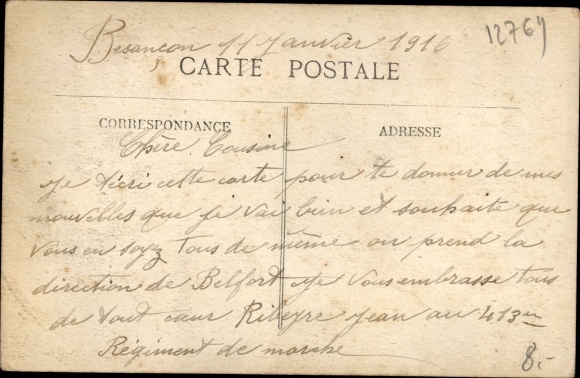 Besançon 11 Janvier 1916
12764
CARTE POSTALE
CORRESPONDANCE
ADRESSE
Chère Cousine
Je técri cette carte pour te donner de mes
nouvelles que je vai bien et souhaite que
vous en soyz tous de même on prend la
direction de Belfort Je vous embrasse tous
de tout cœur Ribeyre Jean au 413em
Régiment de marche
8.-